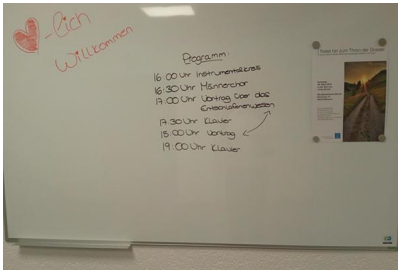 -lich
Willkommen
Programm:
16:00 Uhr Instrumentalkreis
16:30 Uhr Männerchor
17:00 Uhr Vortrag über das
Entschlafenenwesen
17:30 Uhr Klavier
18:00 Uhr Vortrag
19:00 Uhr Klavier